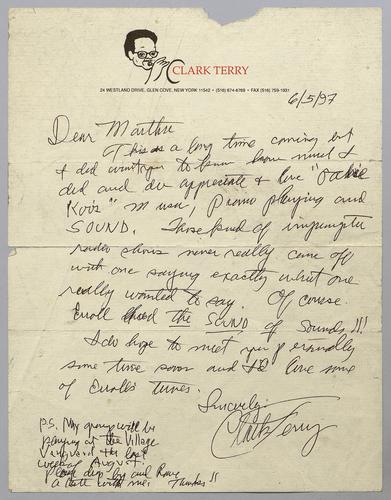 CLARK TERRY
24 WESTLAND DRIVE, GLEN COVE, NEW YORK 11542 • (516) 674-6769 • FAX (516) 759-1931
6/5/97
Dear Martha
This is a long time coming but
I did want you to know how much I
did and do appreciate & love
music, Piano playing and
SOUND. Those kind of impromptu
radio never really came off
with one saying exactly what one
really wanted to say. Of course.
Erroll the SOUND of Sounds!!!
I do hope to meet you personally
some time soon and
of Erroll's tunes.
Sincerely,
Clark Terry
P.S. My group will be
playing at the Village
Vanguard the last
week of August.
Please drop by and have
a taste with me. Thanks!!